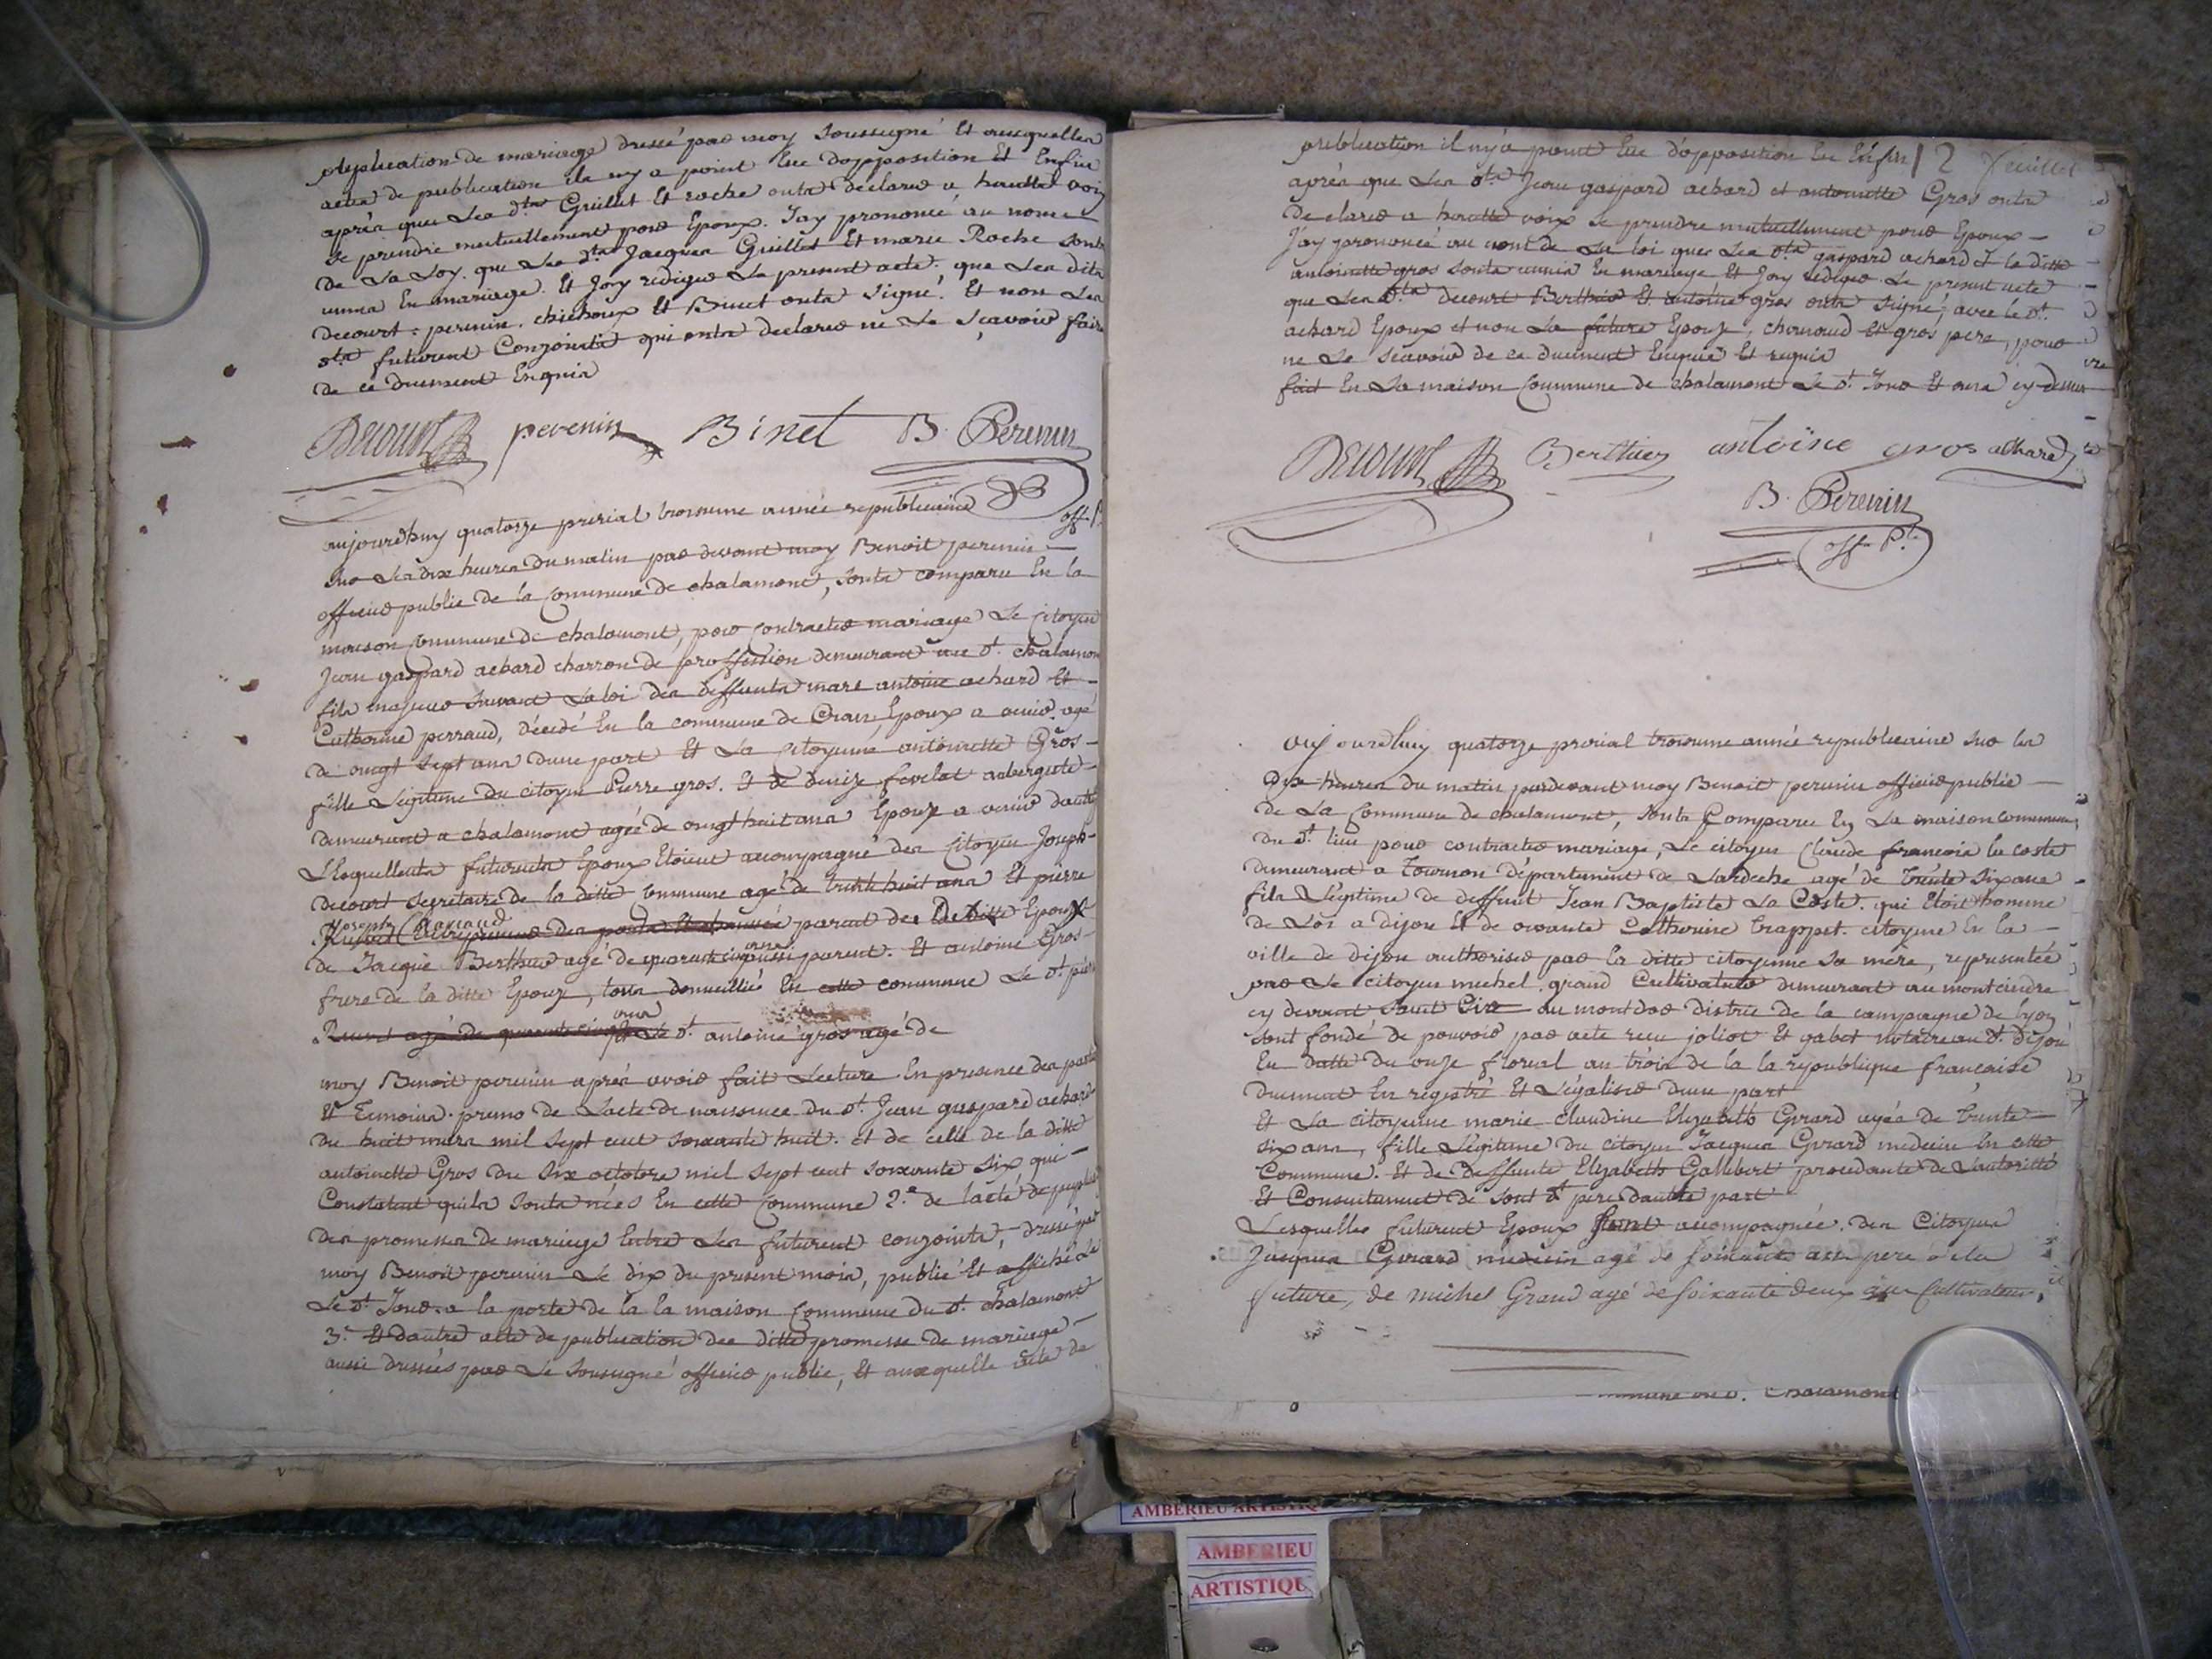 publication de mariage dressé par moy soussigné Et auxquelles
actes de publication ils ny a point Eue dopposition Et Enfin
aprés que Les dts Guillet Et roche onts déclarer a hautte voix
se prendre mutuellement pour Epoux. Jay prononcé au nom
de La Loy. que Les dts Jacques Guillet Et marie Roche sonts
unis En mariage. Et Jay rediger Le present acte. que Les dits
decourt, perenin, et Binet onts signé. Et non Les
dts futurent Conjoints qui onts declarer ne Le sçavoir faire
de ce duement Enquis
Decourt perenin Binet B. Perenin
off. P.
aujourdhuy quatorze prerial troisieme année republicaine
sur Les dix heures du matin par devant moy Benoit perenin
officier public de la Commune de chalamont, sonts comparu En la
maison commune de chalamont, pour Contracter mariage Le Citoyen
Jean gaspard achard charron de proffession demeurant au dt. chalamont
fils majeur suivant La loi des deffunts marc antoine achard Et
Catherine perraud, décédé En la commune de Cran, Epoux a venir agé
de vingt sept ans dune part Et La Citoyenne antoinette Gros
fille Legitime du citoyen Pierre gros. Et de denize fevelat aubergiste
demeurant a chalamont agée de vingt huit ans Epouze a venir dautre
Lesquellents futurents Epoux Etoient accompagné des Citoyen Joseph
decourt segretaire de la ditte Commune agé de trente huit ans Et pierre
Joseph Chavaud
parent des De ditte Epoux
de Jacque Berthier agé de quarante cinq ans aussi parent. Et antoine Gros
frere de la ditte Epouze, tous domicilliés En cette commune Le dt. pierre
ans
dt. antoine gros agé de
moy Benoit perenin aprés avoir fait Lecture En presence des parties
Et Temoins. primo de Lacte de naissance du dt. Jean gaspard achard
du huit mars mil sept cent soixante huit. et de celle de la ditte
antoinette Gros du six octobre miel sept cent soixante six qui
Constatent quils sonts nées En cette Commune 2.e de lacte de publication
des promesses de mariage Entre Les futurent conjoints, dressé par
moy Benoit perenin Le dix du present mois, publié Et affiché le
Le dt. Jour. a la porte de la la maison Commune du dt. chalamont
3.e Et dautre acte de publication des ditte promesse de mariage
aussi dressées par Le soussigné officier public, Et auxquelle acte de
publication il ny a point Eue dopposition Et Enfin 12 feuillet
aprés que Les dts Jean gaspard achard et antoinette Gros onts
declarer a hautte voix se prendre mutuellement pour Epoux
J'ay prononcé au nom de La loi que Les dts gaspard achard et la ditte
antoinette gros sonts unis En mariage Et Jay rediger Le present acte
que Les dts decourt Berthier Et antoine gros onts signé, avec le dt.
achard Epoux et non La future Epouze, et gros pere, pour
ne Le sçavoir de ce duement Enquis Et requis
fait En La maison Commune de chalamont Le dt. Jour Et ans cy dessus
Decourt Berthier antoine gros achard
B. Perenin
off. P.
aujourdhuy quatorze prerial troisieme année republicaine sur les
dix heures du matin pardevant moy Benoit perenin officier public
de La Commune de chalamont, sonts Comparu En La maison commune
du dt. lieu pour contracter mariage, Le citoyen Claude francois la coste
demeurant a Tournon département de Lardeche agé de trente six ans
fils Légitime de deffunt Jean Baptiste La Coste. qui Etoit homme
de Loi a dijon Et de vivante Catherine trappet. citoyene En la
ville de dijon authoriser par la ditte citoyenne sa mère, représentée
par Le citoyen michel, grand Cultivateur demeurant au montcindre
cy devant saint Cire au montdor district de la campagne de lyon
sont fondé de pouvoir par acte recu joliot Et gabet notaire au dt. dijon
En datte du onze floreal an trois de la la republique francaise
duement En registré Et Légaliser dune part
Et La citoyenne marie claudine Elizabeth Girard agéé de trente
six ans, fille Légitime du citoyen Jacques Girard medecin En cette
Commune. Et de deffunte Elyzabeth Galibert procedante de Lautorité
Et Consentement de sont dt pere dautre part
Lesquelles futurent Epoux sont accompagnée. des Citoyens
Jacques Girard medecin agé de soixante ans pere a la
future, de michel Grand agé de soixante deux ans Cultivateur,
chalamont
AMBERIEU ARTISTIQ
AMBERIEU
ARTISTIQU